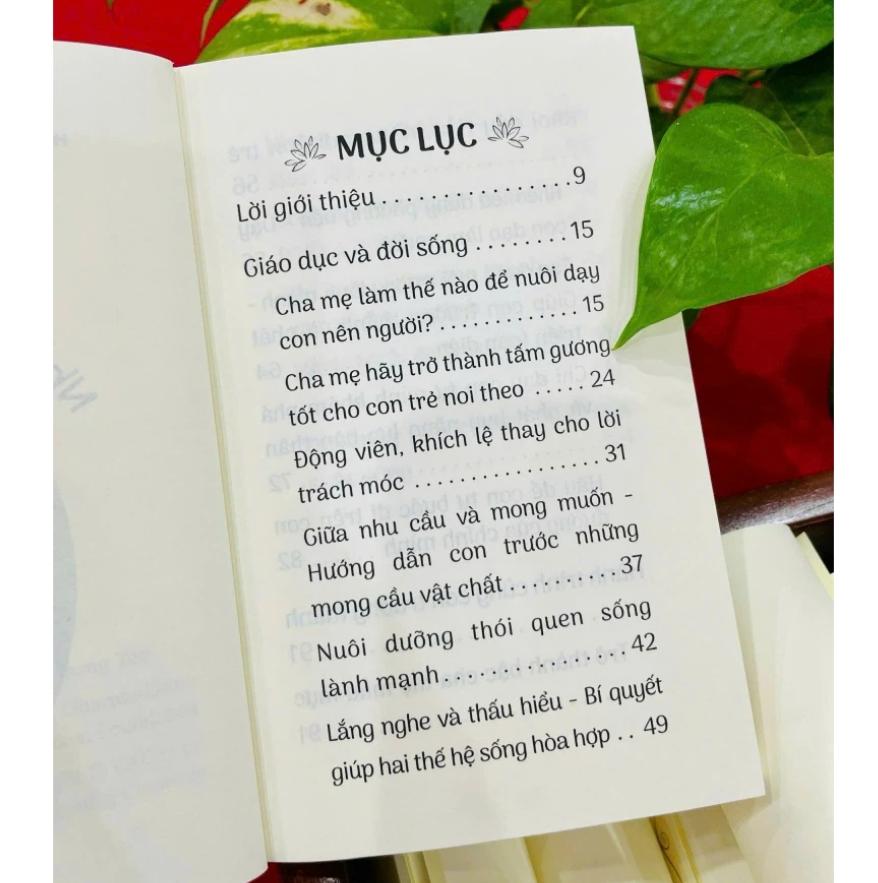 MỤC LỤC
Lời giới thiệu . . . . . . . . . . . . . . . . 9
Giáo dục và đời sống . . . . . . . . 15
Cha mẹ làm thế nào để nuôi dạy
con nên người? . . . . . . . . . . . . 15
Cha mẹ hãy trở thành tấm gương
tốt cho con trẻ noi theo . . . . . 24
Động viên, khích lệ thay cho lời
trách móc . . . . . . . . . . . . . . . . 31
Giữa nhu cầu và mong muốn -
Hướng dẫn con trước những
mong cầu vật chất . . . . . . . . . . 37
Nuôi dưỡng thói quen sống
lành mạnh. . . . . . . . . . . . . . . 42
Lắng nghe và thấu hiểu - Bí quyết
giúp hai thế hệ sống hòa hợp . . 49